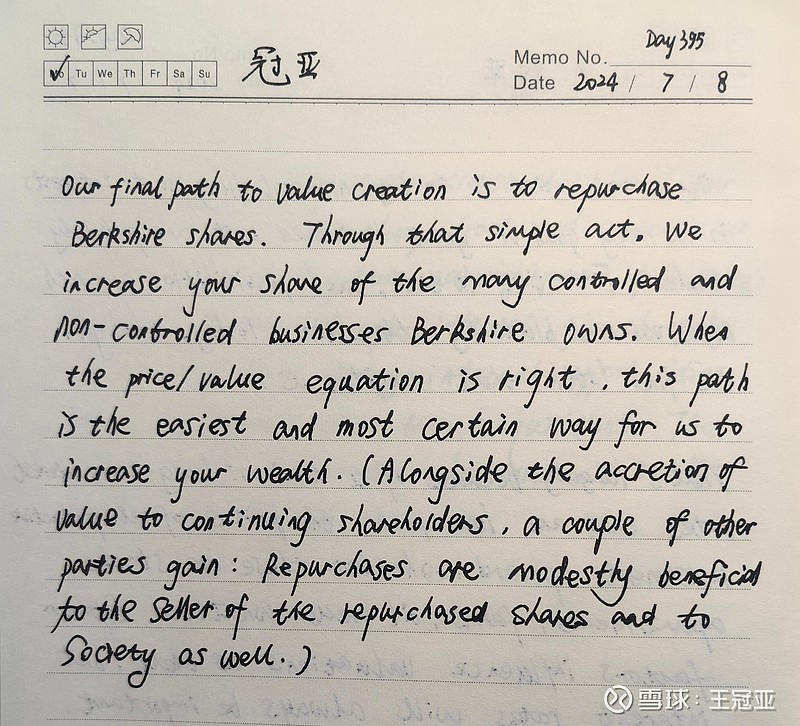 冠亚
Mo Tu We Th Fr Sa Su
Memo No. Day 395
Date 2024 / 7 / 8
Our final path to value creation is to repurchase
Berkshire shares. Through that simple act, we
increase your share of the many controlled and
non-controlled businesses Berkshire owns. When
the price/value equation is right, this path
is the easiest and most certain way for us to
increase your wealth. (Alongside the accretion of
value to continuing shareholders, a couple of other
parties gain: Repurchases are modestly beneficial
to the seller of the repurchased shares and to
Society as well.)
雪球:王冠亚